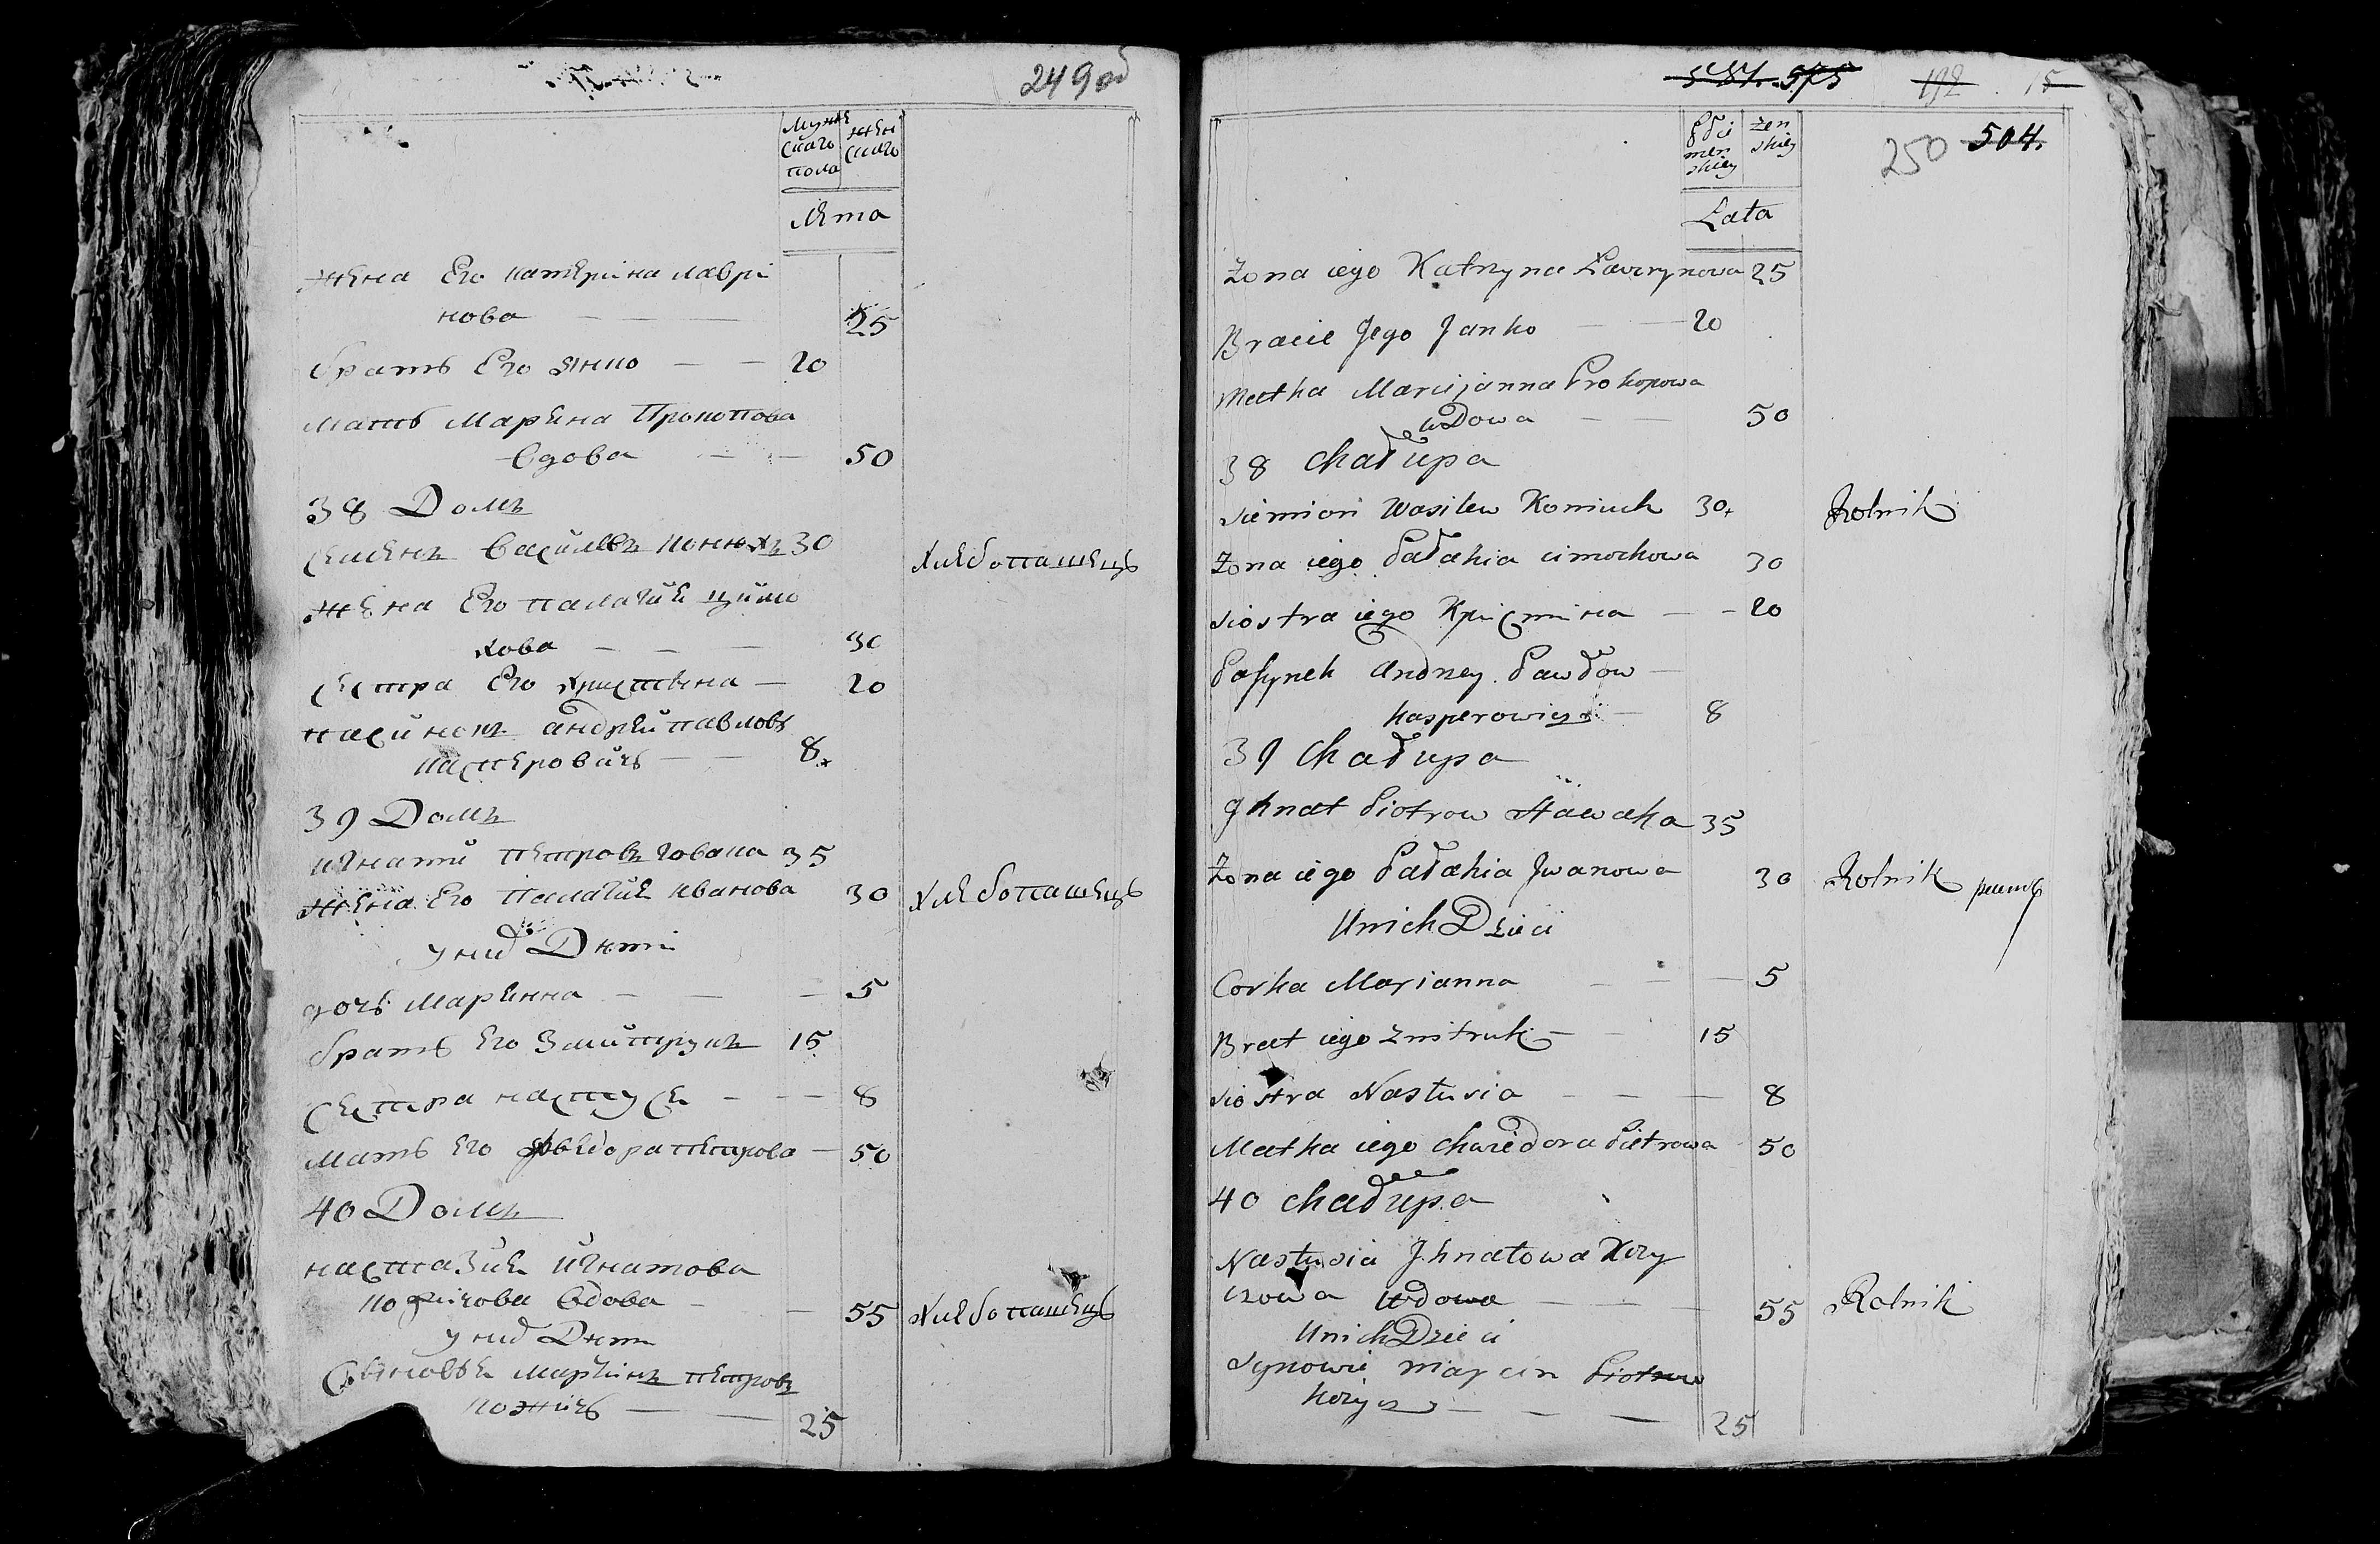 249об
Мужескаго пола
женскаго
Лѣта
Жена Его катеріна лаврі
нова 25
братъ Его Янко 20
мать Марѣна Прокопова
Вдова 50
38 Домъ
Семенъ Василевъ Конюхъ 30
Хлебопашецъ
Жена Его палагия цимо
хова 30
сестра Его Христина 20
пасинокъ андрей павловъ
касперовичъ 8
39 Домъ
игнатий петровъ говака 35
Жена Его Палагия иванова 30 Хлебопашецъ
у них Дети
дочь Маріянна 5
братъ Его Змитрукъ 15
сестра настуся 8
мать Его хведора петрова 50
40 Домъ
настазия игнатова
вдова 55 Хлебопашецъ
у них Дети
Сыновья Марцинъ петровъ
25
250 504.
Płci
men
skiey
żen
skiey
Łata
Zona iego Katrzyna Ławrynowa 25
Bracie Jego Janko 20
Matka Maryjanna Prokopowa
wdowa 50
38 Chałupa
Siemion Wasilew Koniuch 30 Rolnik
Zona iego Pałahia cimochowa 30
Siostra iego Крістина 20
Pasynek Andrzey Pawłow
kasperowicz 8
39 Chałupa
Ihnat Piotrow Hawaka 35
Zona iego Pałahia Iwanowa 30 Rolnik
U nich Dzieci
Corka Marianna 5
Brat iego Zmitruk 15
Siostra Nastusia 8
Matka iego Chwiedora Pietrowa 50
40 Chałupa
Nastusia Ihnatowa Kozy
czowa wdowa 55 Rolnik
U nich Dzieci
Synowie Marcin Piotrow
Kozycz 25